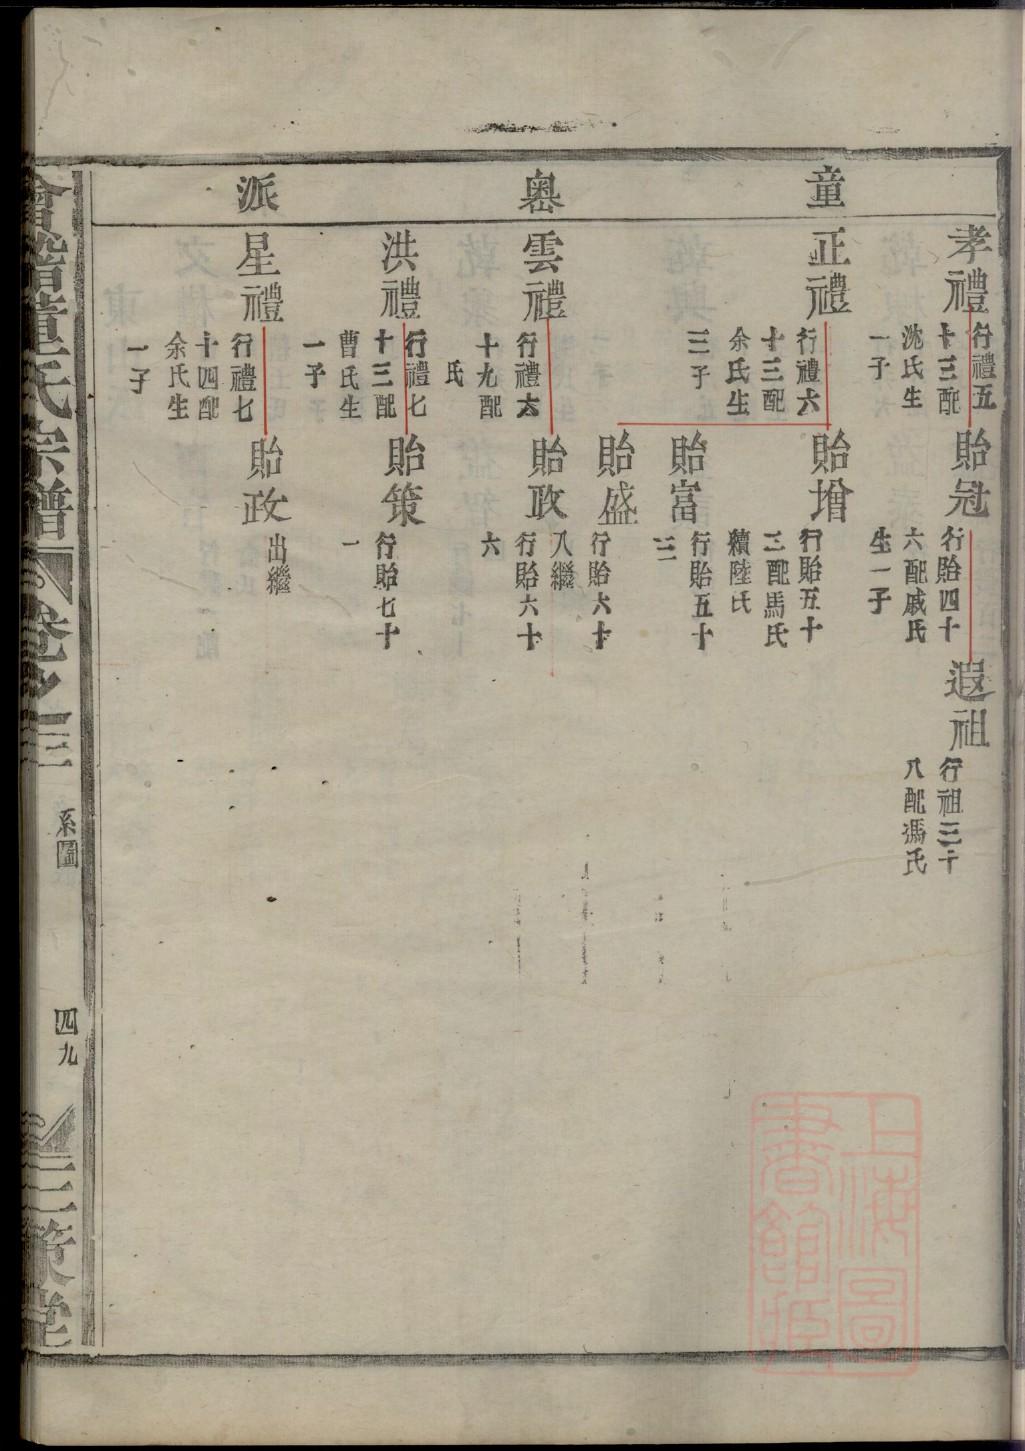 童墺派
孝禮
行禮五
十三配
沈氏生
一子
貽冠
行貽四十
六配戚氏
生一子
遐祖
行祖三十
八配馮氏
正禮
行禮六
十三配
余氏生
三子
貽增
行貽五十
三配馬氏
續陸氏
貽富
行貽五十
三
貽盛
行貽六十
八繼
雲禮
行禮六
十九配
氏
貽政
行貽六十
六
洪禮
行禮七
十三配
曹氏生
一子
貽策
行貽七十
一
星禮
行禮七
十四配
余氏生
一子
貽政
出繼
會稽董氏宗譜
卷之三
系圖
四九
三策堂
上海圖書館藏